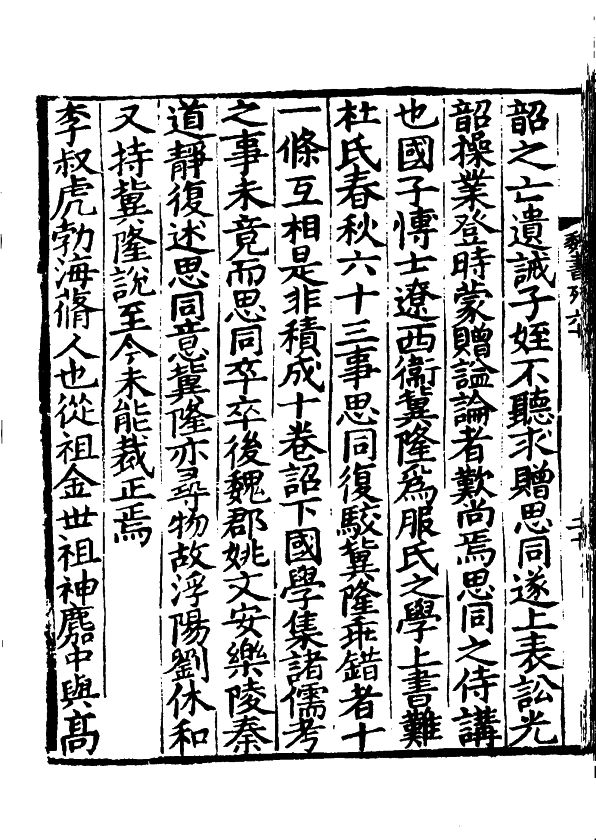 韶之亡遺誡子姪不聽求贈思同遂上表訟光
韶操業登時蒙贈謚論者歎尚焉思同之侍講
也國子博士遼西衞冀隆爲服氏之學上書難
杜氏春秋六十三事思同復駮冀隆乖錯者十
一條互相是非積成十卷詔下國學集諸儒考
之事未竟而思同卒卒後魏郡姚文安樂陵秦
道靜復述思同意冀隆亦尋物故浮陽劉休和
又持冀隆說至今未能裁正焉
李叔虎勃海蓨人也從祖金世祖神䴥中與髙